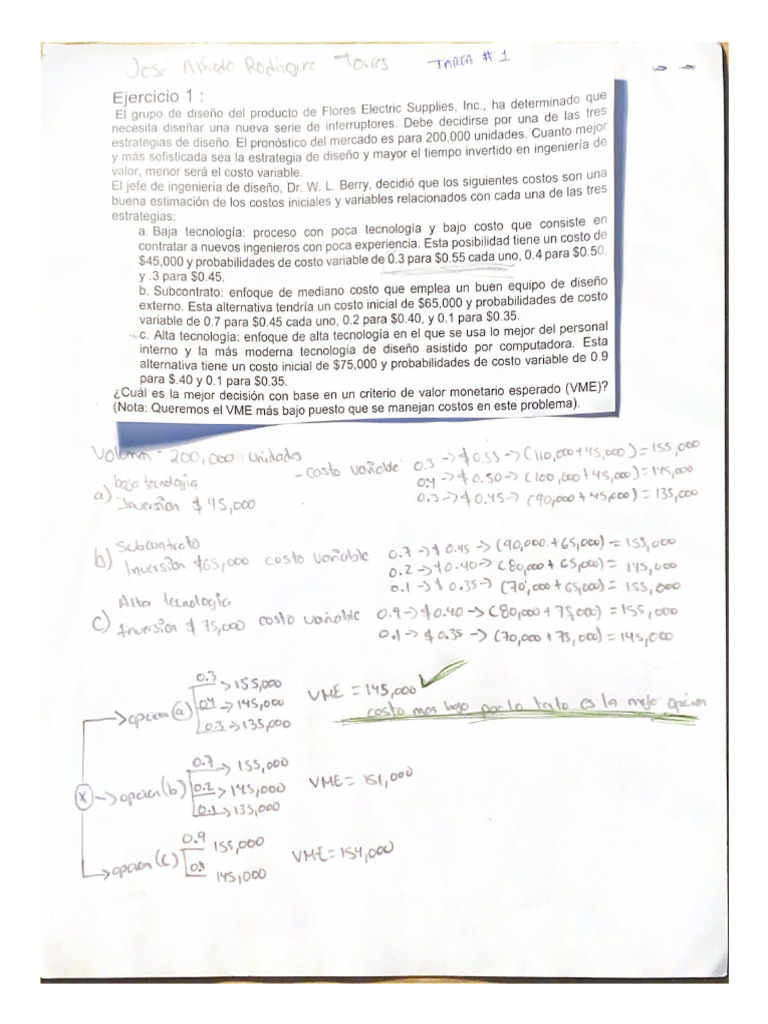 José Alfredo Rodriguez Torres TAREA # 1
Ejercicio 1 :
El grupo de diseño del producto de Flores Electric Supplies, Inc., ha determinado que
necesita diseñar una nueva serie de interruptores. Debe decidirse por una de las tres
estrategias de diseño. El pronóstico del mercado es para 200,000 unidades. Cuanto mejor
y más sofisticada sea la estrategia de diseño y mayor el tiempo invertido en ingeniería de
valor, menor será el costo variable.
El jefe de ingeniería de diseño, Dr. W. L. Berry, decidió que los siguientes costos son una
buena estimación de los costos iniciales y variables relacionados con cada una de las tres
estrategias:
a. Baja tecnología: proceso con poca tecnología y bajo costo que consiste en
contratar a nuevos ingenieros con poca experiencia. Esta posibilidad tiene un costo de
$45,000 y probabilidades de costo variable de 0.3 para $0.55 cada uno, 0.4 para $0.50
y .3 para $0.45.
b. Subcontrato: enfoque de mediano costo que emplea un buen equipo de diseño
externo. Esta alternativa tendría un costo inicial de $65,000 y probabilidades de costo
variable de 0.7 para $0.45 cada uno, 0.2 para $0.40, y 0.1 para $0.35.
c. Alta tecnología: enfoque de alta tecnología en el que se usa lo mejor del personal
interno y la más moderna tecnología de diseño asistido por computadora. Esta
alternativa tiene un costo inicial de $75,000 y probabilidades de costo variable de 0.9
para $.40 y 0.1 para $0.35.
¿Cuál es la mejor decisión con base en un criterio de valor monetario esperado (VME)?
(Nota: Queremos el VME más bajo puesto que se manejan costos en este problema).
Volumn - 200,000 unidades
a) baja tecnologia
Inversion $ 45,000
- costo variable 0.3 -> $0.55 -> (110,000+45,000) = 155,000
0.4 -> $0.50 -> (100,000+45,000) = 145,000
0.3 -> $0.45 -> (90,000+45,000) = 135,000
b) Subcontrato
Inversion $65,000 costo variable 0.7 -> $0.45 -> (90,000+65,000) = 155,000
0.2 -> $0.40 -> (80,000+65,000) = 145,000
0.1 -> $0.35 -> (70,000+65,000) = 155,000
c) Alta tecnologia
Inversion $ 75,000 costo variable 0.9 -> $0.40 -> (80,000+75,000) = 155,000
0.1 -> $0.35 -> (70,000+75,000) = 145,000
opcion (a) 0.3 -> 155,000
0.4 -> 145,000
0.3 -> 135,000
VME = 145,000 ✓
costo mas bajo por lo tanto es la mejor opcion
X -> opcion (b) 0.7 -> 155,000
0.2 -> 145,000
0.1 -> 135,000
VME = 151,000
opcion (c) 0.9 155,000
0.1 145,000
VME = 154,000